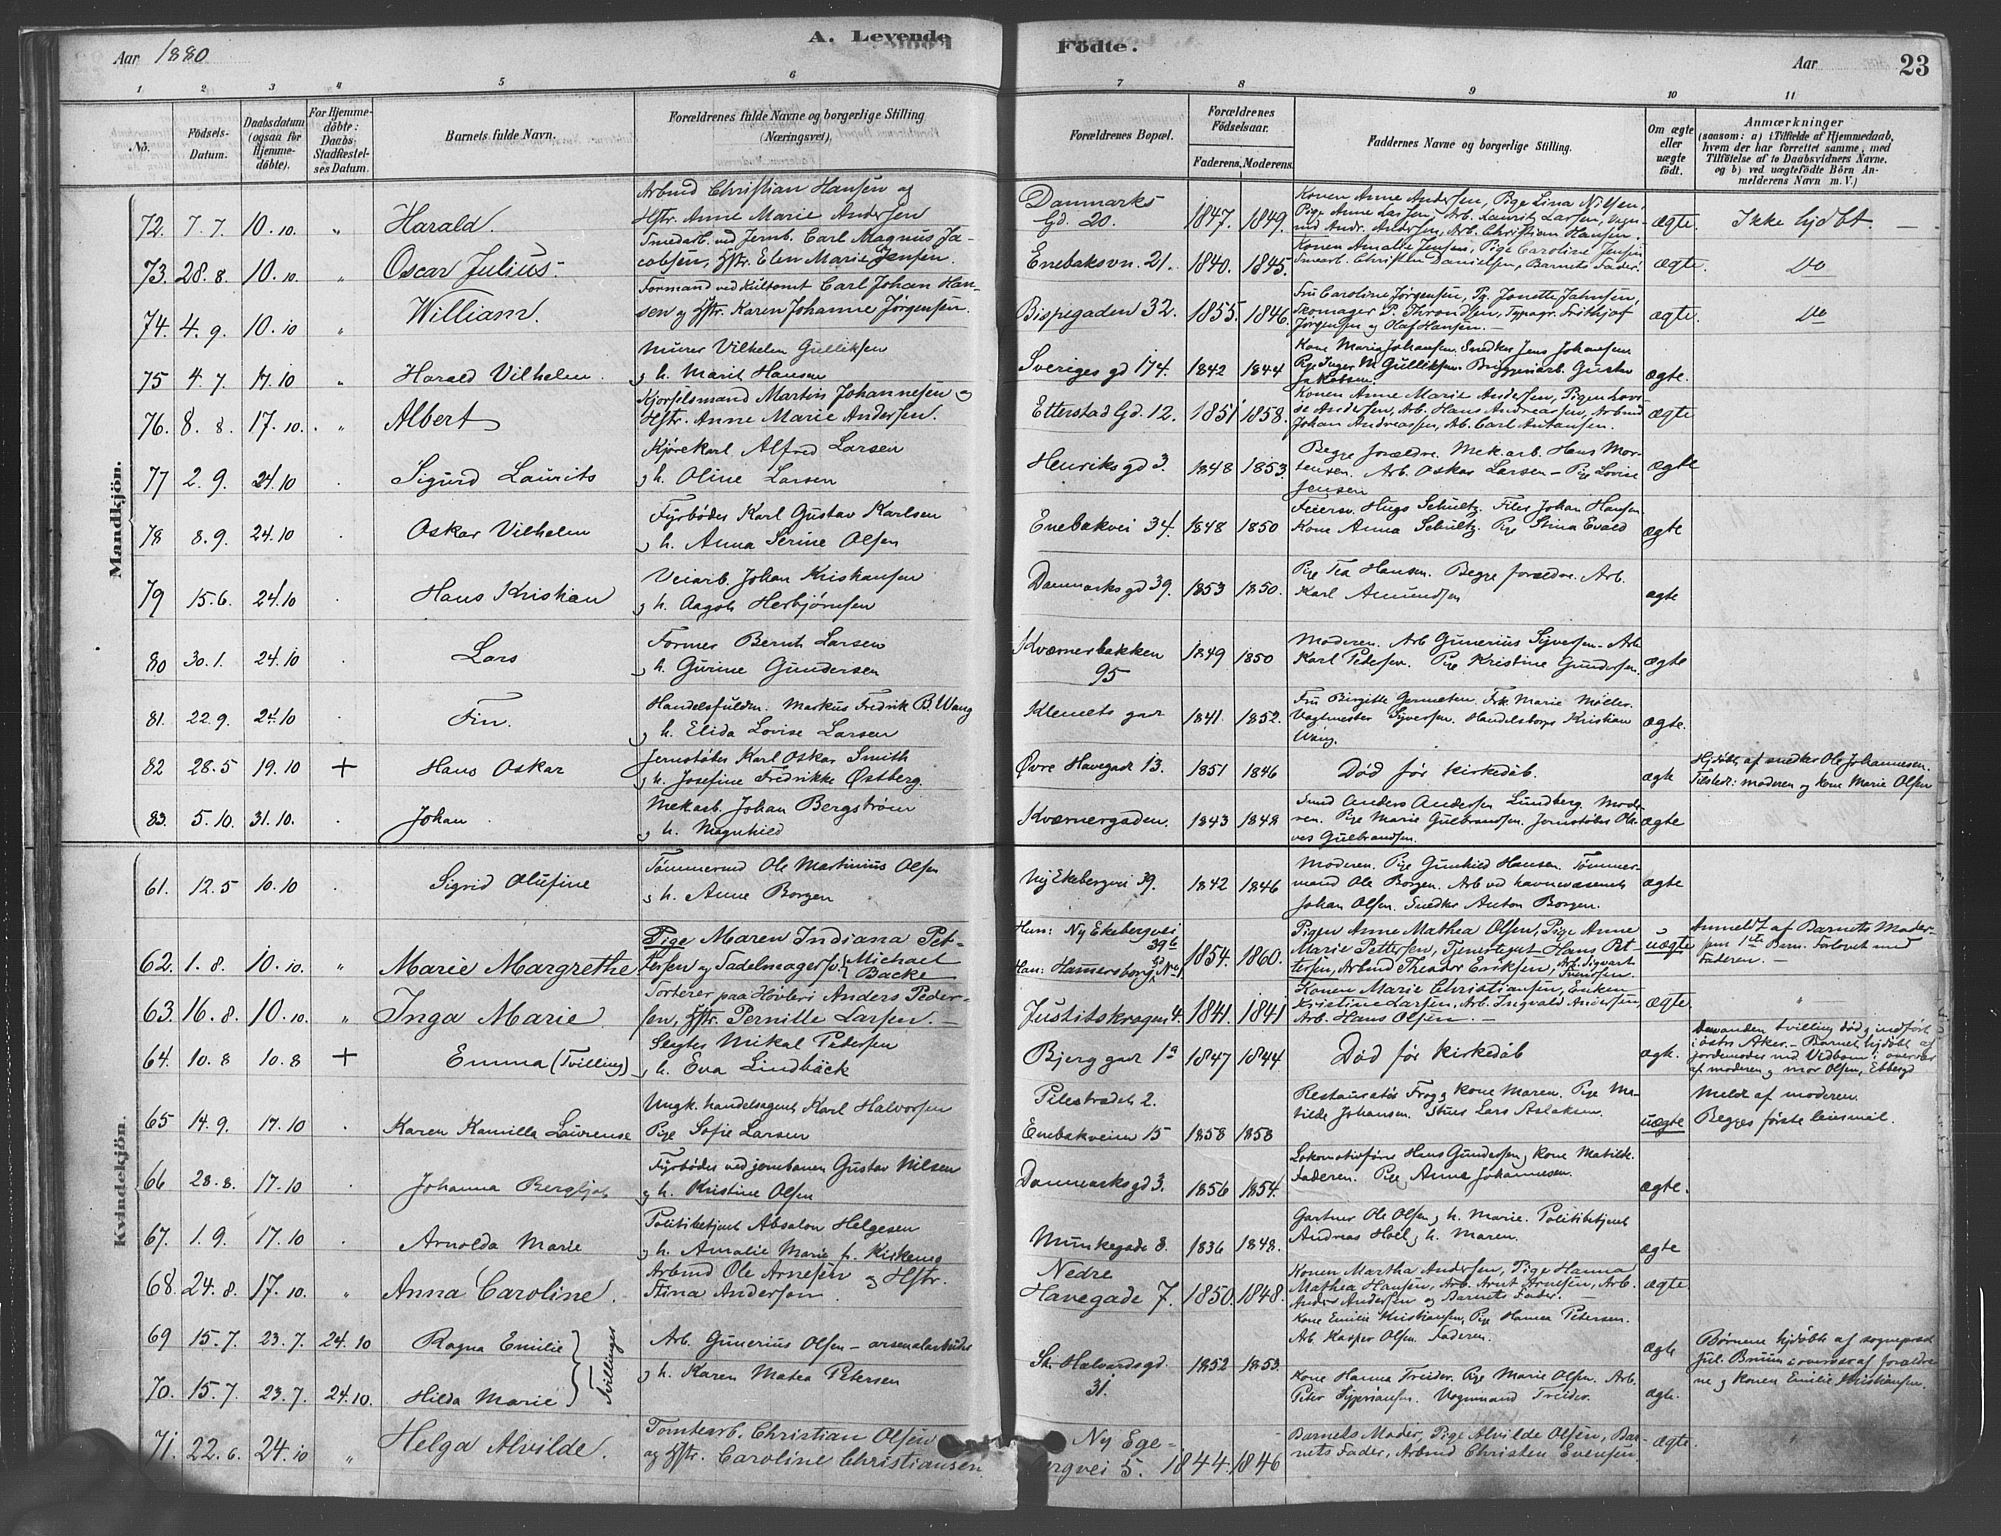 Aar 1880
A. Levende Födte.
Aar
23
1 2 3 4 5 6 7 8 9 10 11
No.
Födsels-Datum.
Daabsdatum (ogsaa for Hjemmedöbte).
For Hjemmedöbte: Daabs Stadfæstelses Datum.
Barnets fulde Navn.
Forældrenes fulde Navne og borgerlige Stilling (Næringsvei).
Forældrenes Bopæl.
Forældrenes Födselsaar.
Faderens. Moderens.
Faddernes Navne og borgerlige Stilling.
Om ægte eller uægte födt.
Anmærkninger
(saasom: a) i Tilfælde af Hjemmedaab, hvem der har forrettet samme, med Tilföielse af to Daabsvidners Navne. og b) ved uægtefödte Börn Anmelderens Navn m. V.)
Mandkjön.
72. 7.7. 10.10. „ Harald. Arbmd Christian Hansen og Hstr. Anne Marie Andersen Danmarks Gd. 20. 1847. 1849. Konen Anne Andersen, Pige Lina Nilsen, Pige Anne Larsen, Arb. Lauritz Larsen, Andr. Andersen, Arb. Christian Hansen. ægte. Ikke hjdbt.
73. 28.8. 10.10. „ Oscar Julius. Smedarb. ved Jernb. Carl Magnus Jacobsen, Hstr. Elen Marie Jensen. Enebaksvn. 21. 1840. 1845. Konen Amalie Jensen, Pige Caroline Jensen, Smearb. Christen Danielsen, Barnets Fader. ægte. Do
74. 4.9. 10.10 „ William. Formand ved Carl Johan Hansen og Hstr. Karen Johanne Jørgensen. Bispegaden 32. 1855. 1846. Fru Caroline Jørgensen, Pg. Jonette Jahnsen, Skomager P. Throndsen, Typogr. Frithjof Jørgensen og Olaf Hansen. ægte. Do
75 4.7. 17.10 „ Harald Vilhelm. Murer Vilhelm Gulliksen og h. Marit Hansen Sveriges gd 174. 1842 1844 Kone Maria Johansen. Snedker Jens Johansen Pige Inger M. Gulliksen. Bryggeriarb. Gustav Jakobsen. ægte.
76. 8.8. 17.10. „ Albert Kjørselsmand Martin Johannesen og Hstr. Anne Marie Andersen. Etterstad Gd. 12. 1851 1858. Konen Anne Marie Andersen, Pigen Lovise Andersen, Arb. Hans Andreassen, Arbmd Johan Andreassen, Ab. Carl Antonsen. ægte
77 2.9. 24.10 . Sigurd Laurits Kjørekarl Alfred Larsen og h. Oline Larsen Henriks gd 3. 1848 1853. Begge forældre. Mek. arb. Hans Mortensen. Arb Oskar Larsen – Pige Lovise Jensen ægte
78 8.9. 24.10 . Oskar Vilhelm Fyrbøder Karl Gustav Karlsen og h. Anna Serine Olsen Enebakvei 34. 1848 1850 Feiersv. Hugo Schultz. Filer Johan Hansen Kone Anna Schultz. Pige Stina Evald ægte
79 15.6. 24.10 . Hans Kristian Veiarb. Johan Kristiansen og h. Aagot Herbjørnsen Danmarks gd 39. 1853 1850. Pige Tea Hansen. Begge forældre. Arb. Karl Amundsen ægte
80 30.1. 24.10 . Lars Former Bernt Larsen og h. Gurine Gundersen Kværnerbakken 95 1849 1850 Moderen. Arb Gunerius Syversen. Arb. Karl Pedersen. Pige Kristine Gundersen. ægte
81. 22.9. 24.10 . Fin. Handelsfuldm. Markus Fredrik B. Wang og h. Elida Lovise Larsen Klemets gad 1841. 1852. Fru Birgitte. Frk. Marie Møller. Vagtmester Syversen. Handelsborger Kristian Wang. ægte.
82 28.5 19.10 + Hans Oskar Jernstøber Karl Oskar Smith og h. Josefine Fredrikke Østberg. Øvre Havegad 13. 1851 1846 Død før kirkedåb. ægte Hjdøbt af snedker Ole Johannesen. Tilstede: moderen og kone Marie Olsen
83. 5.10. 31.10. . Johan Mek. arb. Johan Bergstrøm og h. Magnhild Kværnergaden. 1843 1848 Smed Anders Andersen Lundberg. Moderen. Pige Marie Gulbrandsen. Jernstøber Gulbrandsen. ægte
Kvindekjön.
61. 12.5 10.10 . Sigrid Olufine Tømmermd Ole Martinius Olsen og h. Anne Borgen Ny Ekebergvei 39. 1842 1846 Moderen. Pige Gunhild Hansen. Tømmermand Ole Borgen. Arb ved havnevæsenet Johan Olsen. Snedker Anton Borgen. ægte
62. 1.8. 10.10. „ Marie Margrethe Pige Maren Indiana Pettersen og Sadelmagersv. Michael Backe Hun: Ny Ekebergvei 39 b Han: Hammersborg 1854. 1860. Pigen Anne Mathea Olsen, Pige Anne Marie Pettersen, Tjenestegut Hans Pettersen, Arbmd Theodor Eriksen, Arb. Sigvart Svendsen. uægte Anmeldt af Barnets Moder. 1ste Barn. Forlovet med Faderen.
63. 16.8. 10.10. „ Inga Marie. Sorterer paa Høvleri Anders Pedersen, Hstr. Pernille Larsen. Justitskrogen 4. 1841. 1841 Konen Marie Christiansen, Enken Kristine Larsen, Arb. Ingvald Andersen, Arb. Hans Olsen. ægte. „
64. 10.8 10.8 + Emma (Tvilling) Slagter Mikal Pedersen og h. Eva Lindbäck Bjerg gad 1a 1847 1844 Død før kirkedåb ægte. Den anden tvilling død og indført i østre Aker. – Barnet hjdøbt af jordemoder i overvær af moderen og mor Olsen,
65 14.9. 17.10 . Karen Kamilla Laurense Ungk. handelsagent Karl Halvorsen Pige Sofie Larsen Pilestrædet 2. Enebakveien 15 1858 1858 Restauratør Frog og kone Maren. Pige Matilde Johansen. Lars Aslaksen. uægte Meldt af moderen. Begges første leiermål.
66 28.8. 17.10 . Johanna Bergljot Fyrbøder ved jernbanen Gustav Nilsen og h. Kristine Olsen Danmarks gd 3. 1856 1854. Lokomotivfører Hans Gundersen og kone Matilde. Faderen. Pige Anne Johannesen. ægte.
67. 1.9. 17.10 . Arnolda Marie Politibetjent Absalon Helgesen og h. Amalie Marie f. Kirkeng Munkegade 8. 1836 1848. Gartner Ole Olsen og h. Marie. Politibetjent Andreas Hoel og h. Maren. ægte
68. 24.8. 17.10. „ Anna Caroline. Arbmd Ole Arnesen og Hstr. Stina Anderson Nedre Havegade 7. 1850. 1848. Konen Martha Andersen, Pige Hanna Mathea Hansen, Arb. Arnt Arnesen, Arb. Andr. Andersen og Barnets Fader. ægte.
69 15.7. 23.7. 24.10 Ragna Emilie } Tvillinger Arb. Gunerius Olsen – arsenalarbeider St. Halvardsgd. 31. 1852 1853. Kone Emilie Kristiansen, Pige Hanna Petersen. Arb. Kasper Olsen. Faderen. ægte Børnene hjdøbte af sogneprest Jul. Bruun i overvær af forældrene og konen Emilie Kristiansen.
70. 15.7. 23.7. 24.10. Hilda Marie og h. Karen Matea Petersen Kone Hanna Treider. Pige Marie Olsen. Arb. Peter Syversen. Vognmand Treider. ægte.
71. 22.6. 24.10 „ Helga Alvilde. Tomtearb. Christian Olsen og Hstr. Caroline Christiansen. Ny Egebergvei 5. 1844. 1846 Barnets Moder, Pige Alvilde Olsen, Barnets Fader, Arbmd Christen Evensen. ægte